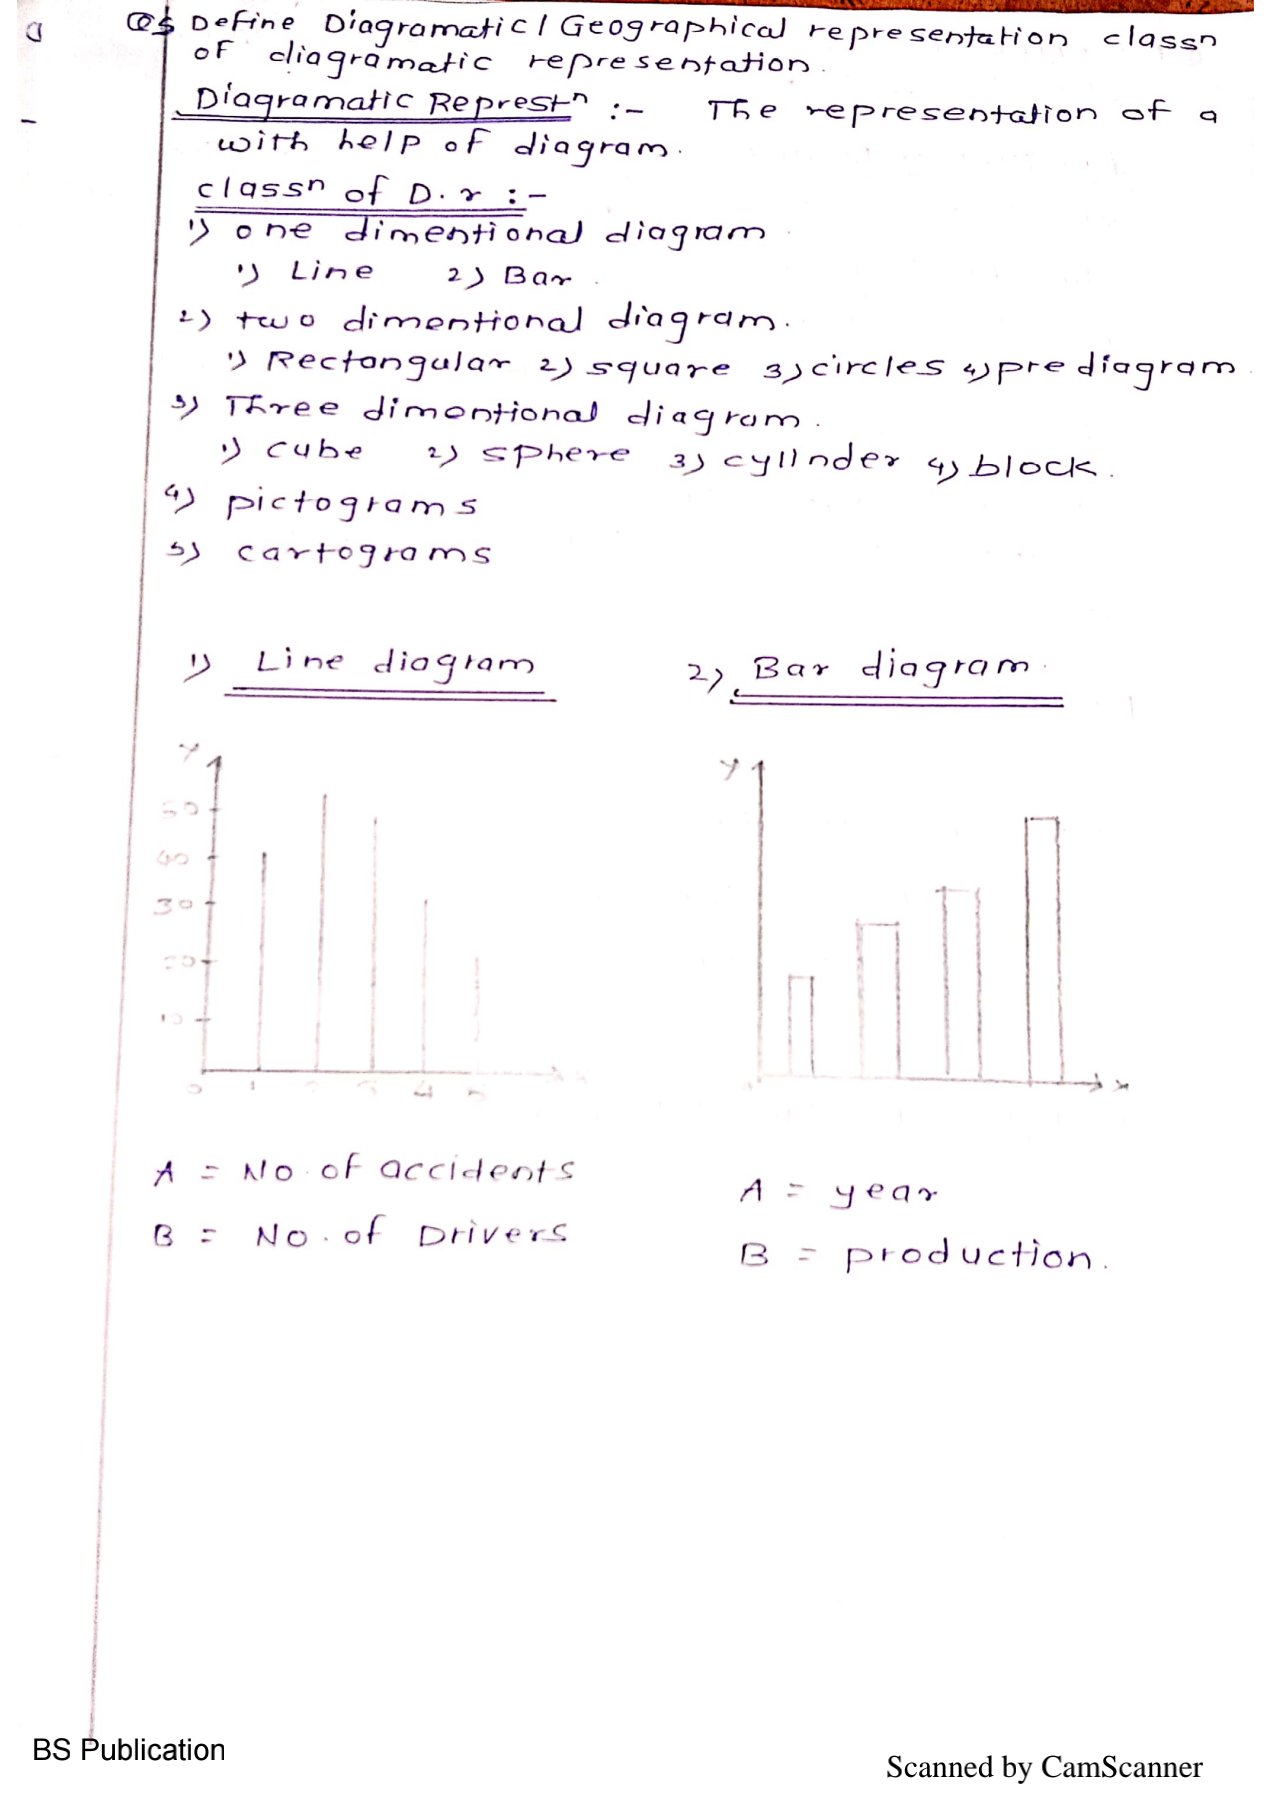 Q5 Define Diagramatic / Geographical representation classn
of diagramatic representation.
Diagramatic Represtn :- The representation of a
with help of diagram.
classn of D.r :-
1) one dimentional diagram
1) Line 2) Bar
2) two dimentional diagram.
1) Rectangular 2) square 3) circles 4) pre diagram
3) Three dimentional diagram.
1) cube 2) sphere 3) cylinder 4) block.
4) pictograms
5) cartograms
1) Line diagram
2) Bar diagram
Y
50
40
30
20
10
0 1 2 3 4 5 X
Y
X
A = No. of accidents
B = No. of Drivers
A = year
B = production.
BS Publication
Scanned by CamScanner